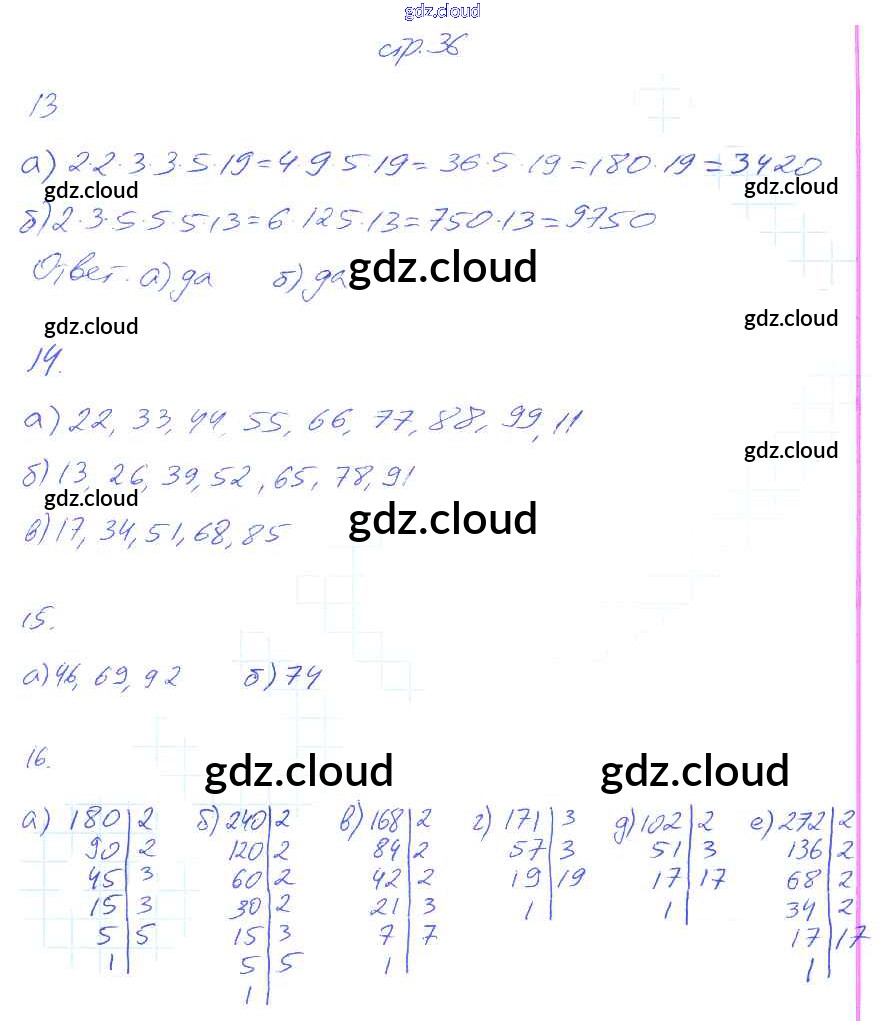 gdz.cloud
стр. 36
13
а) 2·2·3·3·5·19=4·9·5·19=36·5·19=180·19=3420
gdz.cloud gdz.cloud
б) 2·3·5·5·5·13=6·125·13=750·13=9750
Ответ. а) да б) да
gdz.cloud
gdz.cloud gdz.cloud
14.
а) 22, 33, 44, 55, 66, 77, 88, 99, 11
gdz.cloud
б) 13, 26, 39, 52, 65, 78, 91
gdz.cloud gdz.cloud
в) 17, 34, 51, 68, 85
15.
а) 46, 69, 92 б) 74
16.
gdz.cloud gdz.cloud
а) 180|2 б) 240|2 в) 168|2 г) 171|3 д) 102|2 е) 272|2
90|2 120|2 84|2 57|3 51|3 136|2
45|3 60|2 42|2 19|19 17|17 68|2
15|3 30|2 21|3 1| 1| 34|2
5|5 15|3 7|7 17|17
1| 5|5 1| 1|
1|